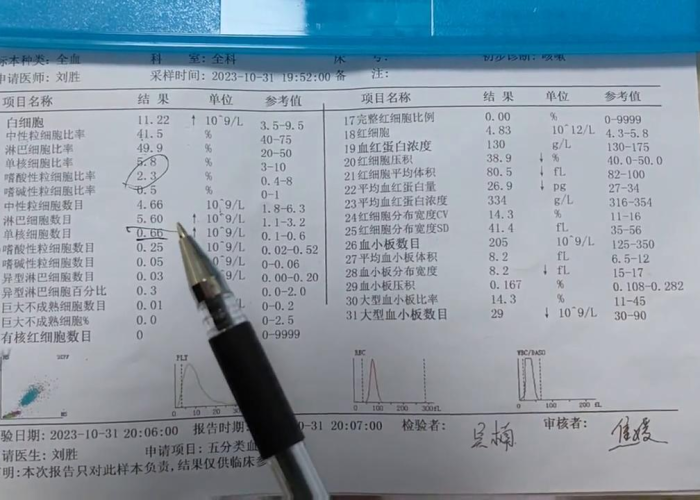 标本种类: 全血 科 室: 全科 床 号: 初步诊断: 咳嗽
申请医师: 刘胜 采样时间: 2023-10-31 19:52:00 备 注:
项目名称 结 果 单位 参考值 项目名称 结 果 单位 参考值
白细胞 11.22 ↑ 10^9/L 3.5-9.5 17完整红细胞比例 0.00 % 0-9999
中性粒细胞比率 41.5 % 40-75 18红细胞 4.83 10^12/L 4.3-5.8
淋巴细胞比率 49.9 % 20-50 19血红蛋白浓度 130 g/L 130-175
单核细胞比率 5.8 % 3-10 20红细胞压积 38.9 ↓ % 40.0-50.0
嗜酸性粒细胞比率 2.3 % 0.4-8 21红细胞平均体积 80.5 ↓ fL 82-100
嗜碱性粒细胞比率 0.5 % 0-1 22平均血红蛋白量 26.9 ↓ pg 27-34
中性粒细胞数目 4.66 10^9/L 1.8-6.3 23平均血红蛋白浓度 334 g/L 316-354
淋巴细胞数目 5.60 ↑ 10^9/L 1.1-3.2 24红细胞分布宽度CV 14.3 % 11-16
单核细胞数目 0.66 ↑ 10^9/L 0.1-0.6 25红细胞分布宽度SD 41.4 fL 35-56
嗜酸性粒细胞数目 0.25 10^9/L 0.02-0.52 26血小板数目 205 10^9/L 125-350
嗜碱性粒细胞数目 0.05 10^9/L 0-0.06 27平均血小板体积 8.2 fL 6.5-12
异型淋巴细胞数目 0.03 10^9/L 0.00-0.20 28血小板分布宽度 8.2 ↓ fL 15-17
异型淋巴细胞百分比 0.3 % 0.0-2.0 29血小板压积 0.167 % 0.108-0.282
巨大不成熟细胞数目 0.01 10^9/L 0-0.2 30大型血小板比率 14.3 % 11-45
巨大不成熟细胞% 0.0 0-2.5 31大型血小板数目 29 ↓ 10^9/L 30-90
有核红细胞数目 0 0-9999
PLT RBC WBC/BASO
0 10 20 30 fL 0 100 300fL 0 100 200 fL
验日期: 2023-10-31 20:06:00 报告时期: -10-31 20:07:00 检验者: 吴楠 审核者:
请医生: 刘胜 申请项目: 五分类血
明:本次报告只对此样本负责,结果仅供临床参